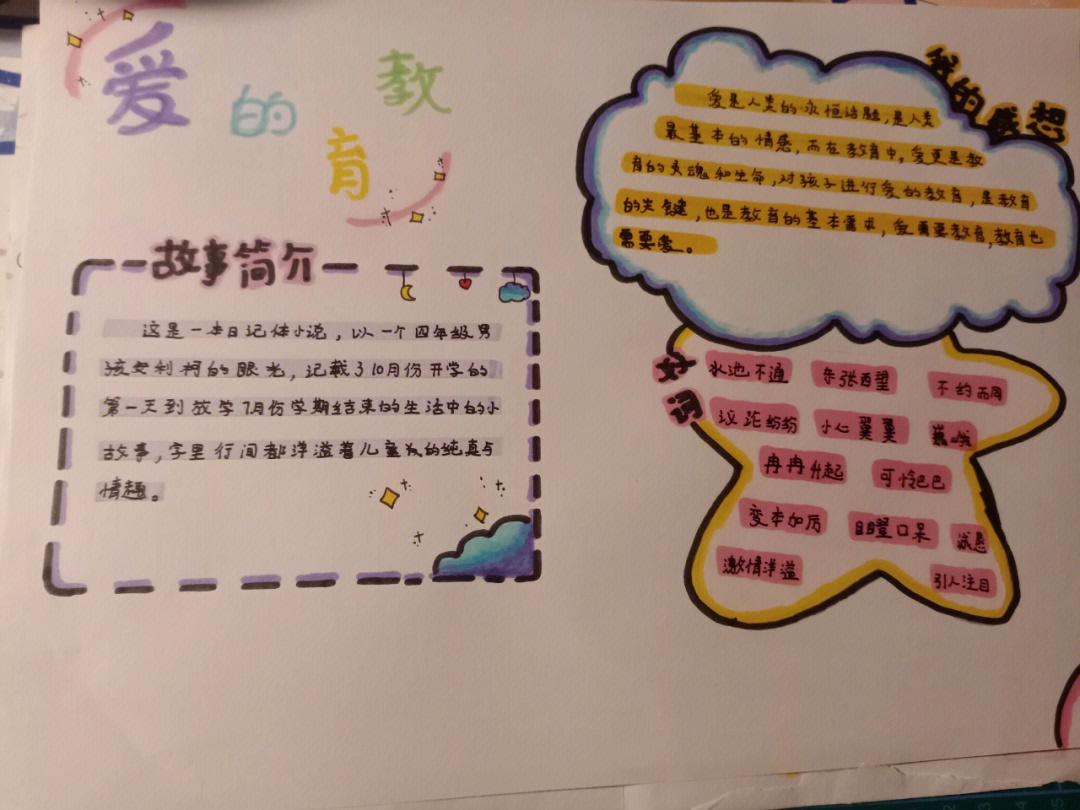 爱的教育
故事简介
这是一本日记体小说，以一个四年级男
孩安利柯的眼光，记载了10月份开学的
第一天到放学7月份学期结束的生活中的小
故事，字里行间都洋溢着儿童般的纯真与
情趣。
我的感想
爱是人类的永恒话题，是人类
最基本的情感，而在教育中，爱更是教
育的灵魂和生命，对孩子进行爱的教育，是教育
的关键，也是教育的基本需求，爱需要教育，教育也
需要爱。
好词
水泄不通 东张西望 不约而同
议论纷纷 小心翼翼
冉冉升起 可怜巴巴
变本加厉 目瞪口呆 诚恳
激情洋溢 引人注目